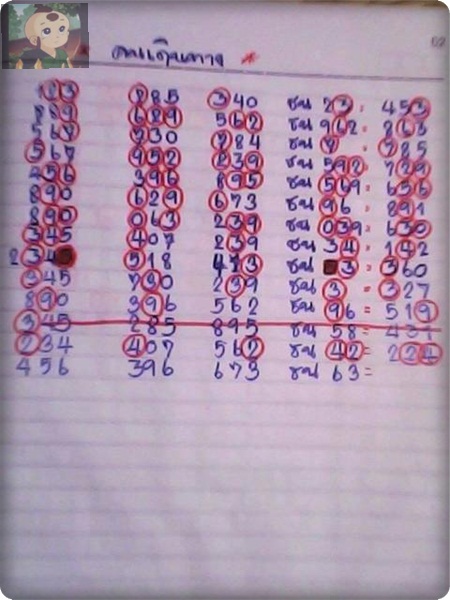 คนเดินทาง
123 285 340 ชน 23 = 453
889 689 562 ชน 962 = 863
567 730 284 ชน 7 = 285
567 952 639 ชน 592 = 739
456 396 895 ชน 569 = 656
890 629 673 ชน 96 = 891
890 063 239 ชน 039 = 630
345 407 239 ชน 34 = 142
234 518 473 ชน 3 = 360
345 730 239 ชน 3 = 327
890 396 562 ชน 96 = 519
345 285 895 ชน 58 = 431
234 407 562 ชน 42 = 224
456 396 673 ชน 63 =